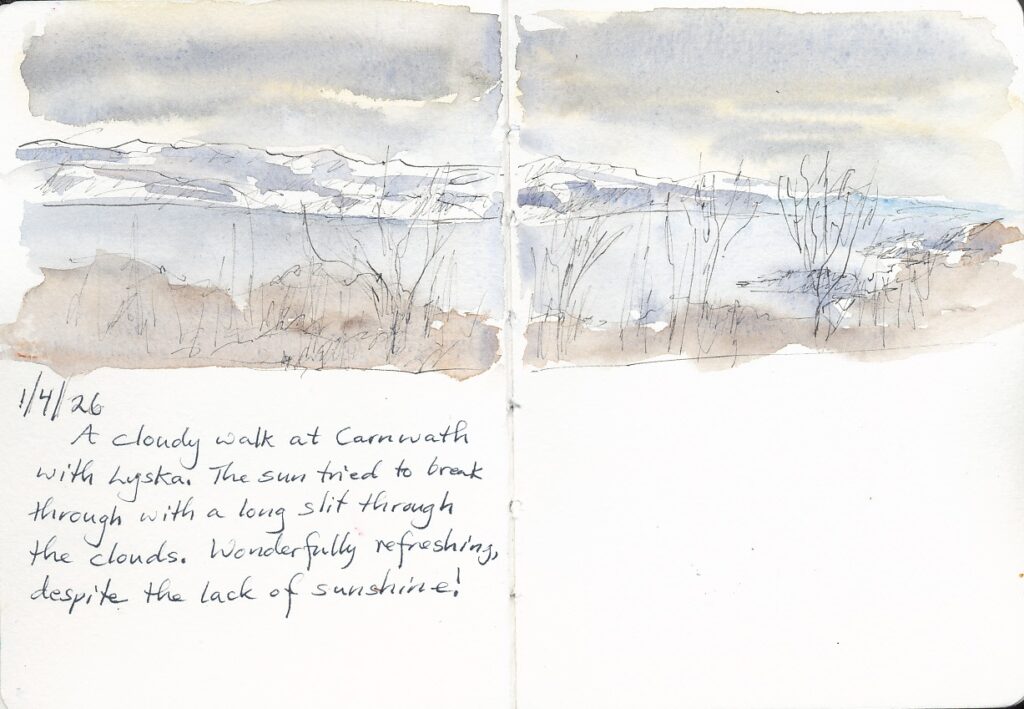 1/4/26
A cloudy walk at Carnwath
with Lyska. The sun tried to break
through with a long slit through
the clouds. Wonderfully refreshing,
despite the lack of sunshine!